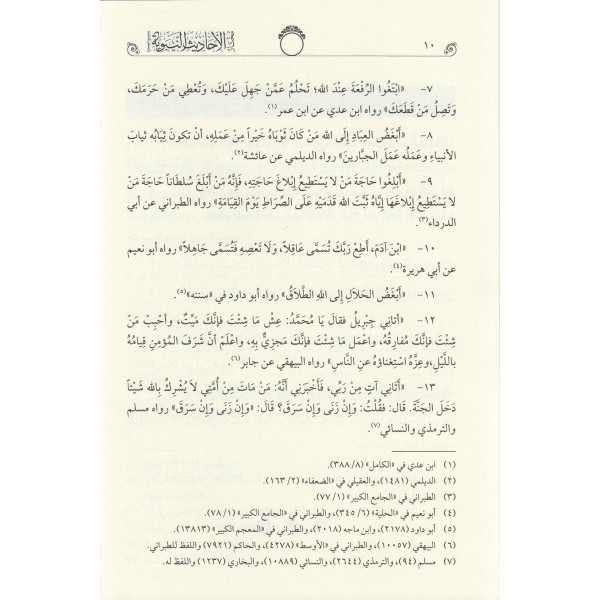 ١٠ الأحاديث النبوية
٧- «ابْتَغُوا الرِّفْعَةَ عِنْدَ الله؛ تَحْلُمُ عَمَّنْ جَهِلَ عَلَيْكَ، وَتُعْطِي مَنْ حَرَمَكَ،
وَتَصِلُ مَنْ قَطَعَكَ» رواه ابن عدي عن ابن عمر(١).
٨- «أَبْغَضُ العِبَادِ إِلَى الله مَنْ كَانَ ثَوْبَاهُ خَيْراً مِنْ عَمَلِهِ، أَنْ تَكونَ ثِيَابُه ثيابَ
الأنبياءِ وعَمَلُه عَمَلَ الجبَّارينَ» رواه الديلمي عن عائشة(٢).
٩- «أَبْلِغُوا حَاجَةَ مَنْ لا يَسْتَطِيعُ إبْلاغَ حَاجَتِهِ، فَإنَّهُ مَنْ أَبْلَغَ سُلطَاناً حَاجَةَ مَنْ
لا يَسْتَطِيعُ إِبْلاغَهَا إيَّاهُ ثَبَّتَ الله قَدَمَيْهِ عَلَى الصِّرَاطِ يَوْمَ القِيَامَةِ» رواه الطبراني عن أبي
الدرداء(٣).
١٠- «ابْنَ آدَمَ، أَطِعْ رَبَّكَ تُسَمَّى عَاقِلاً، وَلَا تَعْصِهِ فَتُسَمَّى جَاهِلاً» رواه أبو نعيم
عن أبي هريرة(٤).
١١- «أَبْغَضُ الحَلَالِ إِلَى اللهِ الطَّلَاقُ» رواه أبو داود في «سننه»(٥).
١٢- «أتاني جِبْرِيلُ فقالَ يَا مُحَمَّدُ: عِشْ مَا شِئْتَ فإنَّكَ مَيِّتٌ، وأحْبِبْ مَنْ
شِئْتَ فإنَّكَ مُفارِقُهُ، واعْمَل مَا شِئْتَ فإنَّكَ مَجزِيٌّ بِهِ، واعْلَمْ أنَّ شَرَفَ المُؤْمِنِ قِيامُهُ
بِاللَّيْلِ، وعِزَّهُ اسْتِغناؤهُ عنِ النَّاسِ» رواه البيهقي عن جابر(٦).
١٣- «أَتَانِي آتٍ مِنْ رَبِّي، فَأَخْبَرَنِي أَنَّهُ: مَنْ مَاتَ مِنْ أُمَّتِي لاَ يُشْرِكُ بِالله شَيْئاً
دَخَلَ الجَنَّةَ. قَال: فقُلْتُ: وَإِنْ زَنَى وَإِنْ سَرَقَ؟ قَالَ: «وَإِنْ زَنَى وَإِنْ سَرَقَ» رواه مسلم
والترمذي والنسائي(٧).
(١) ابن عدي في «الكامل» (٨/ ٣٨٨).
(٢) الديلمي (١٤٨١)، والعقيلي في «الضعفاء» (٢/ ١٦٣).
(٣) الطبراني في «الجامع الكبير» (١/ ٧٧).
(٤) أبو نعيم في «الحلية» (٦/ ٣٤٥)، والطبراني في «الجامع الكبير» (١/ ٧٨).
(٥) أبو داود (٢١٧٨)، وابن ماجه (٢٠١٨)، والطبراني في «المعجم الكبير» (١٣٨١٣).
(٦) البيهقي (١٠٠٥٧)، والطبراني في «الأوسط» (٤٢٧٨)، والحاكم (٧٩٢١) واللفظ للطبراني.
(٧) مسلم (٩٤)، والترمذي (٢٦٤٤)، والنسائي (١٠٨٨٩)، والبخاري (١٢٣٧) واللفظ له.